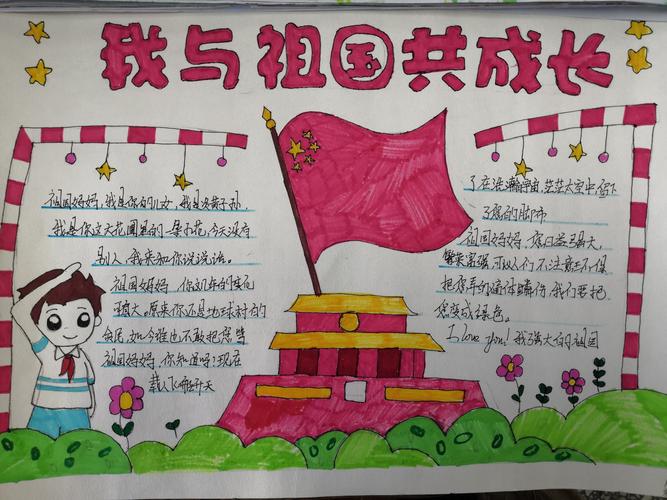 我与祖国共成长
祖国妈妈,我是你的儿女,我是炎黄子孙
我是你这大花园里的一朵小花,今天没有
别人,我来和你说说话。
祖国妈妈,你这几年的变化
大。原来你还是地球村的
如今谁也不敢把您
祖国妈妈,你知道吗?现在
载人飞船升天
了在浩瀚宇宙,茫茫太空中留下
了您的脚印
祖国妈妈,您日益强大,
繁荣富强,可人们不注意
把您
您变成绿色。
I love you!我强大的祖国